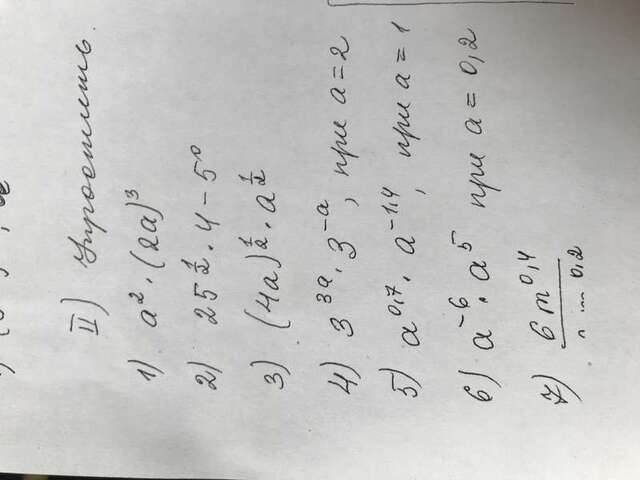 II) Упростить.
1) a² · (2a)³
2) 25^½ · 4 - 5⁰
3) (4a)^½ · a^½
4) 3^3a · 3^-a, при a = 2
5) a^0,7 · a^-1,4, при a = 1
6) a^-6 · a^5 при a = 0,2
7) 6 m^0,4